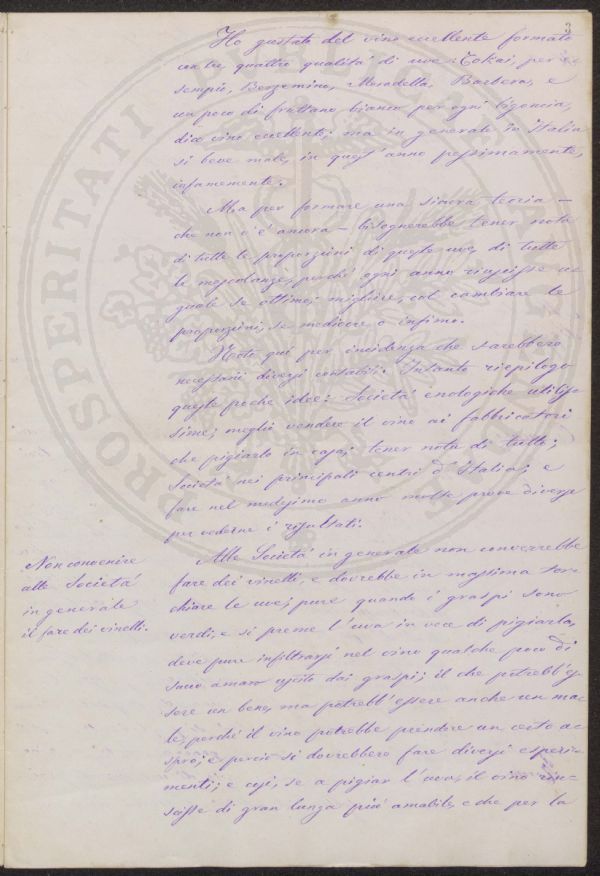 3
Ho gustato del vino eccellente formato
con tre, quattro qualità di uve: Tokai, per e=
sempio, Berzemino, Moradella, Barbera, e
un poco di fruttano bianco per ogni bigoncia,
dico vino eccellente; ma in generale in Italia
si beve male, in quest'anno pessimamente,
infamemente.
Ma per formare una sicura teoria —
che non c'è ancora — bisognerebbe tener nota
di tutte le proporzioni di queste uve, di tutte
le mescolanze, perchè ogni anno riuscisse u=
guale se ottimo; migliore, col cambiare le
proporzioni, se mediocre o infimo.
Noto qui per incidenza che sarebbero
necessarii diversi contabili. Intanto riepilogo
queste poche idee: Società enologiche utilis=
sime; meglio vendere il vino ai fabbricatori
che pigiarlo in casa; tener nota di tutto;
Società nei principali centri d'Italia; e
fare nel medesimo anno molte prove diverse
per vederne i risultati.
Non convenire
alle Società
in generale
il fare dei vinelli.
Alle Società in generale non converrebbe
fare dei vinelli, e dovrebbe in massima tor=
chiare le uve; pure quando i graspi sono
verdi, e si preme l'uva in vece di pigiarla,
deve pure infiltrarsi nel vino qualche poco di
succo amaro uscito dai graspi; il che potrebb'es=
sere un bene, ma potrebb'essere anche un ma=
le, perchè il vino potrebbe prendere un certo a=
spro; e perciò si dovrebbero fare diversi esperi=
menti; e così, se a pigiar l'uva, il vino riu=
scisse di gran lunga più amabile, e che per la
PROSPERITATI PUBLICAE